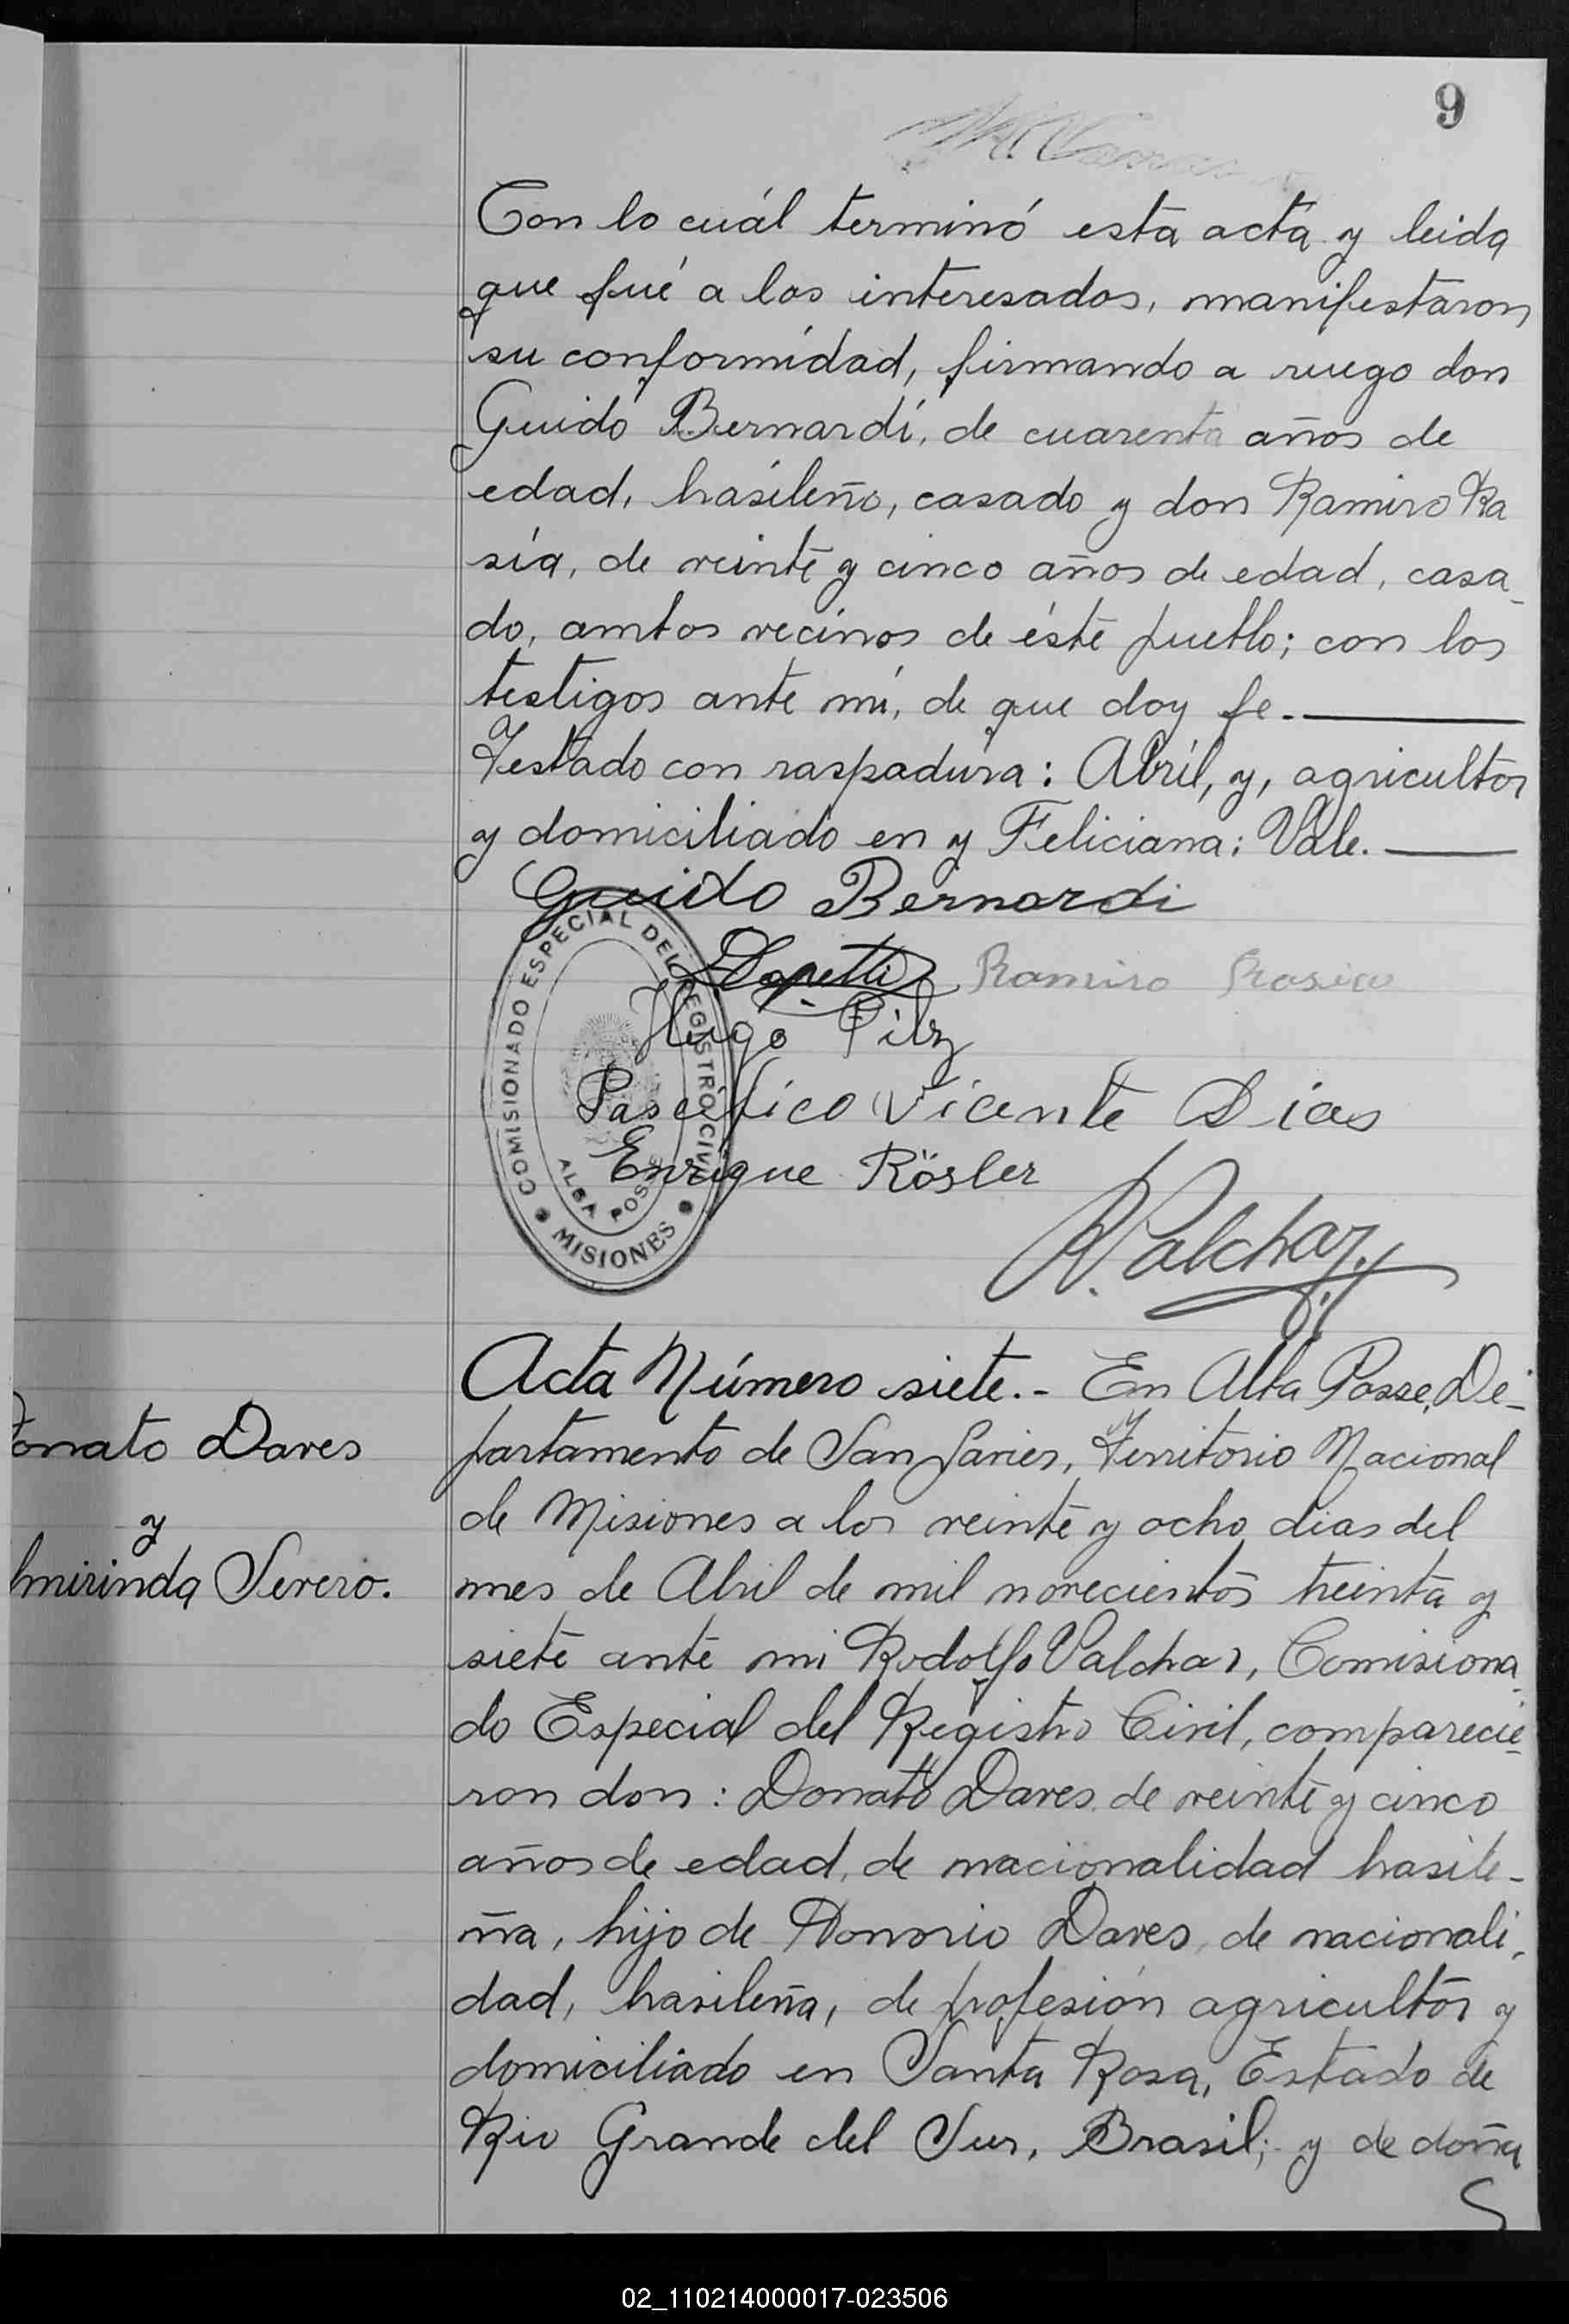 9
Con lo cuál terminó esta acta y leida
que fué a los interesados, manifestaron
su conformidad, firmando a ruego don
Guido Bernardi, de cuarenta años de
edad, brasileño, casado y don Ramiro Ra
sia, de veinte y cinco años de edad, casa_
do, ambos vecinos de éste pueblo; con los
testigos ante mí, de que doy fe.-
Testado con raspadura: Abríl, y, agricultor
y domiciliado en y Feliciana: Vale.
Guido Bernardi
Ramiro Rasia
Hugo Pilz
Pascifico Vicente Dias
Enrique Rösler
R. Valchar
COMISIONADO ESPECIAL DEL REGISTRO CIVIL
ALBA POSSE
MISIONES
Acta Número siete.- En Alba Posse, De-
partamento de San Javier, Territorio Nacional
de Misiones a los veinte y ocho dias del
mes de Abril de mil novecientos treinta y
siete ante mi Rodolfo Valchar, Comisiona_
do Especial del Registro Civil, comparecie_
ron don: Donato Daves de veinte y cinco
años de edad, de nacionalidad brasile-
ña, hijo de Honorio Daves, de nacionali-
dad, brasileña, de profesión agricultor y
domiciliado en Santa Rosa, Estado de
Rio Grande del Sur, Brasil; y de doña
onato Daves
y
lmirinda Severo.
02_110214000017-023506